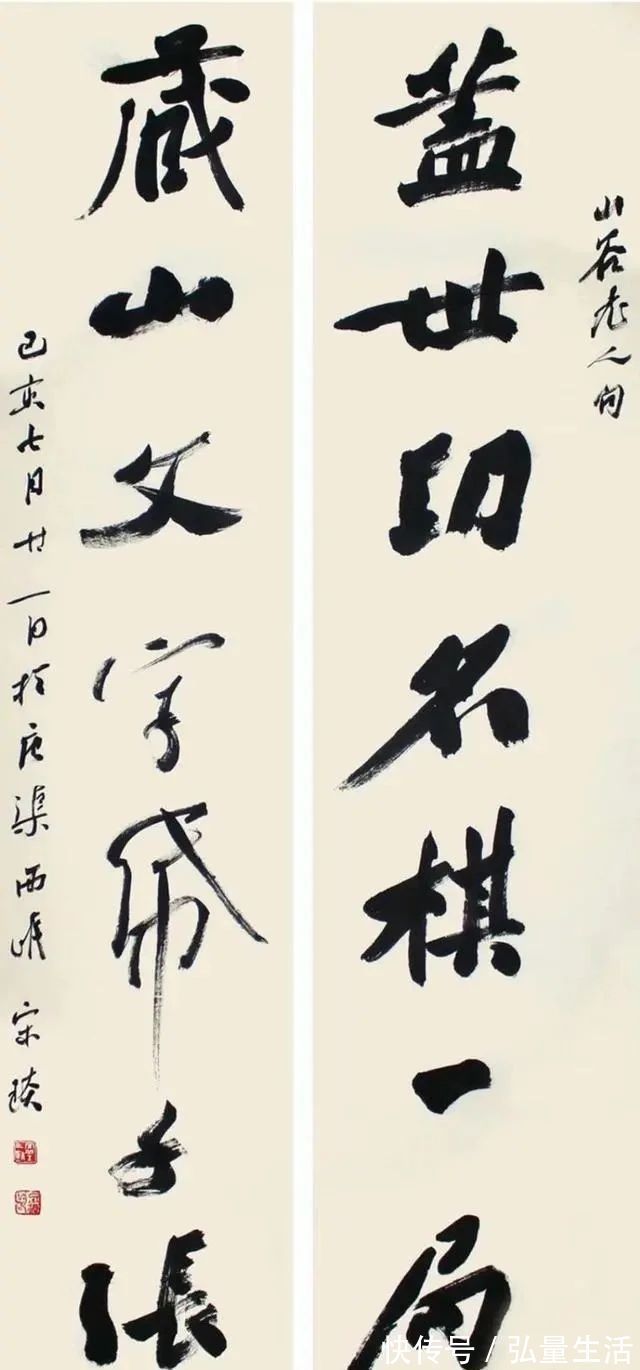 山谷老人句
蓋世功名棋一局
藏山文字帋千張
己亥七月廿一日於唐渠西 宋琰
快传号／弘量生活